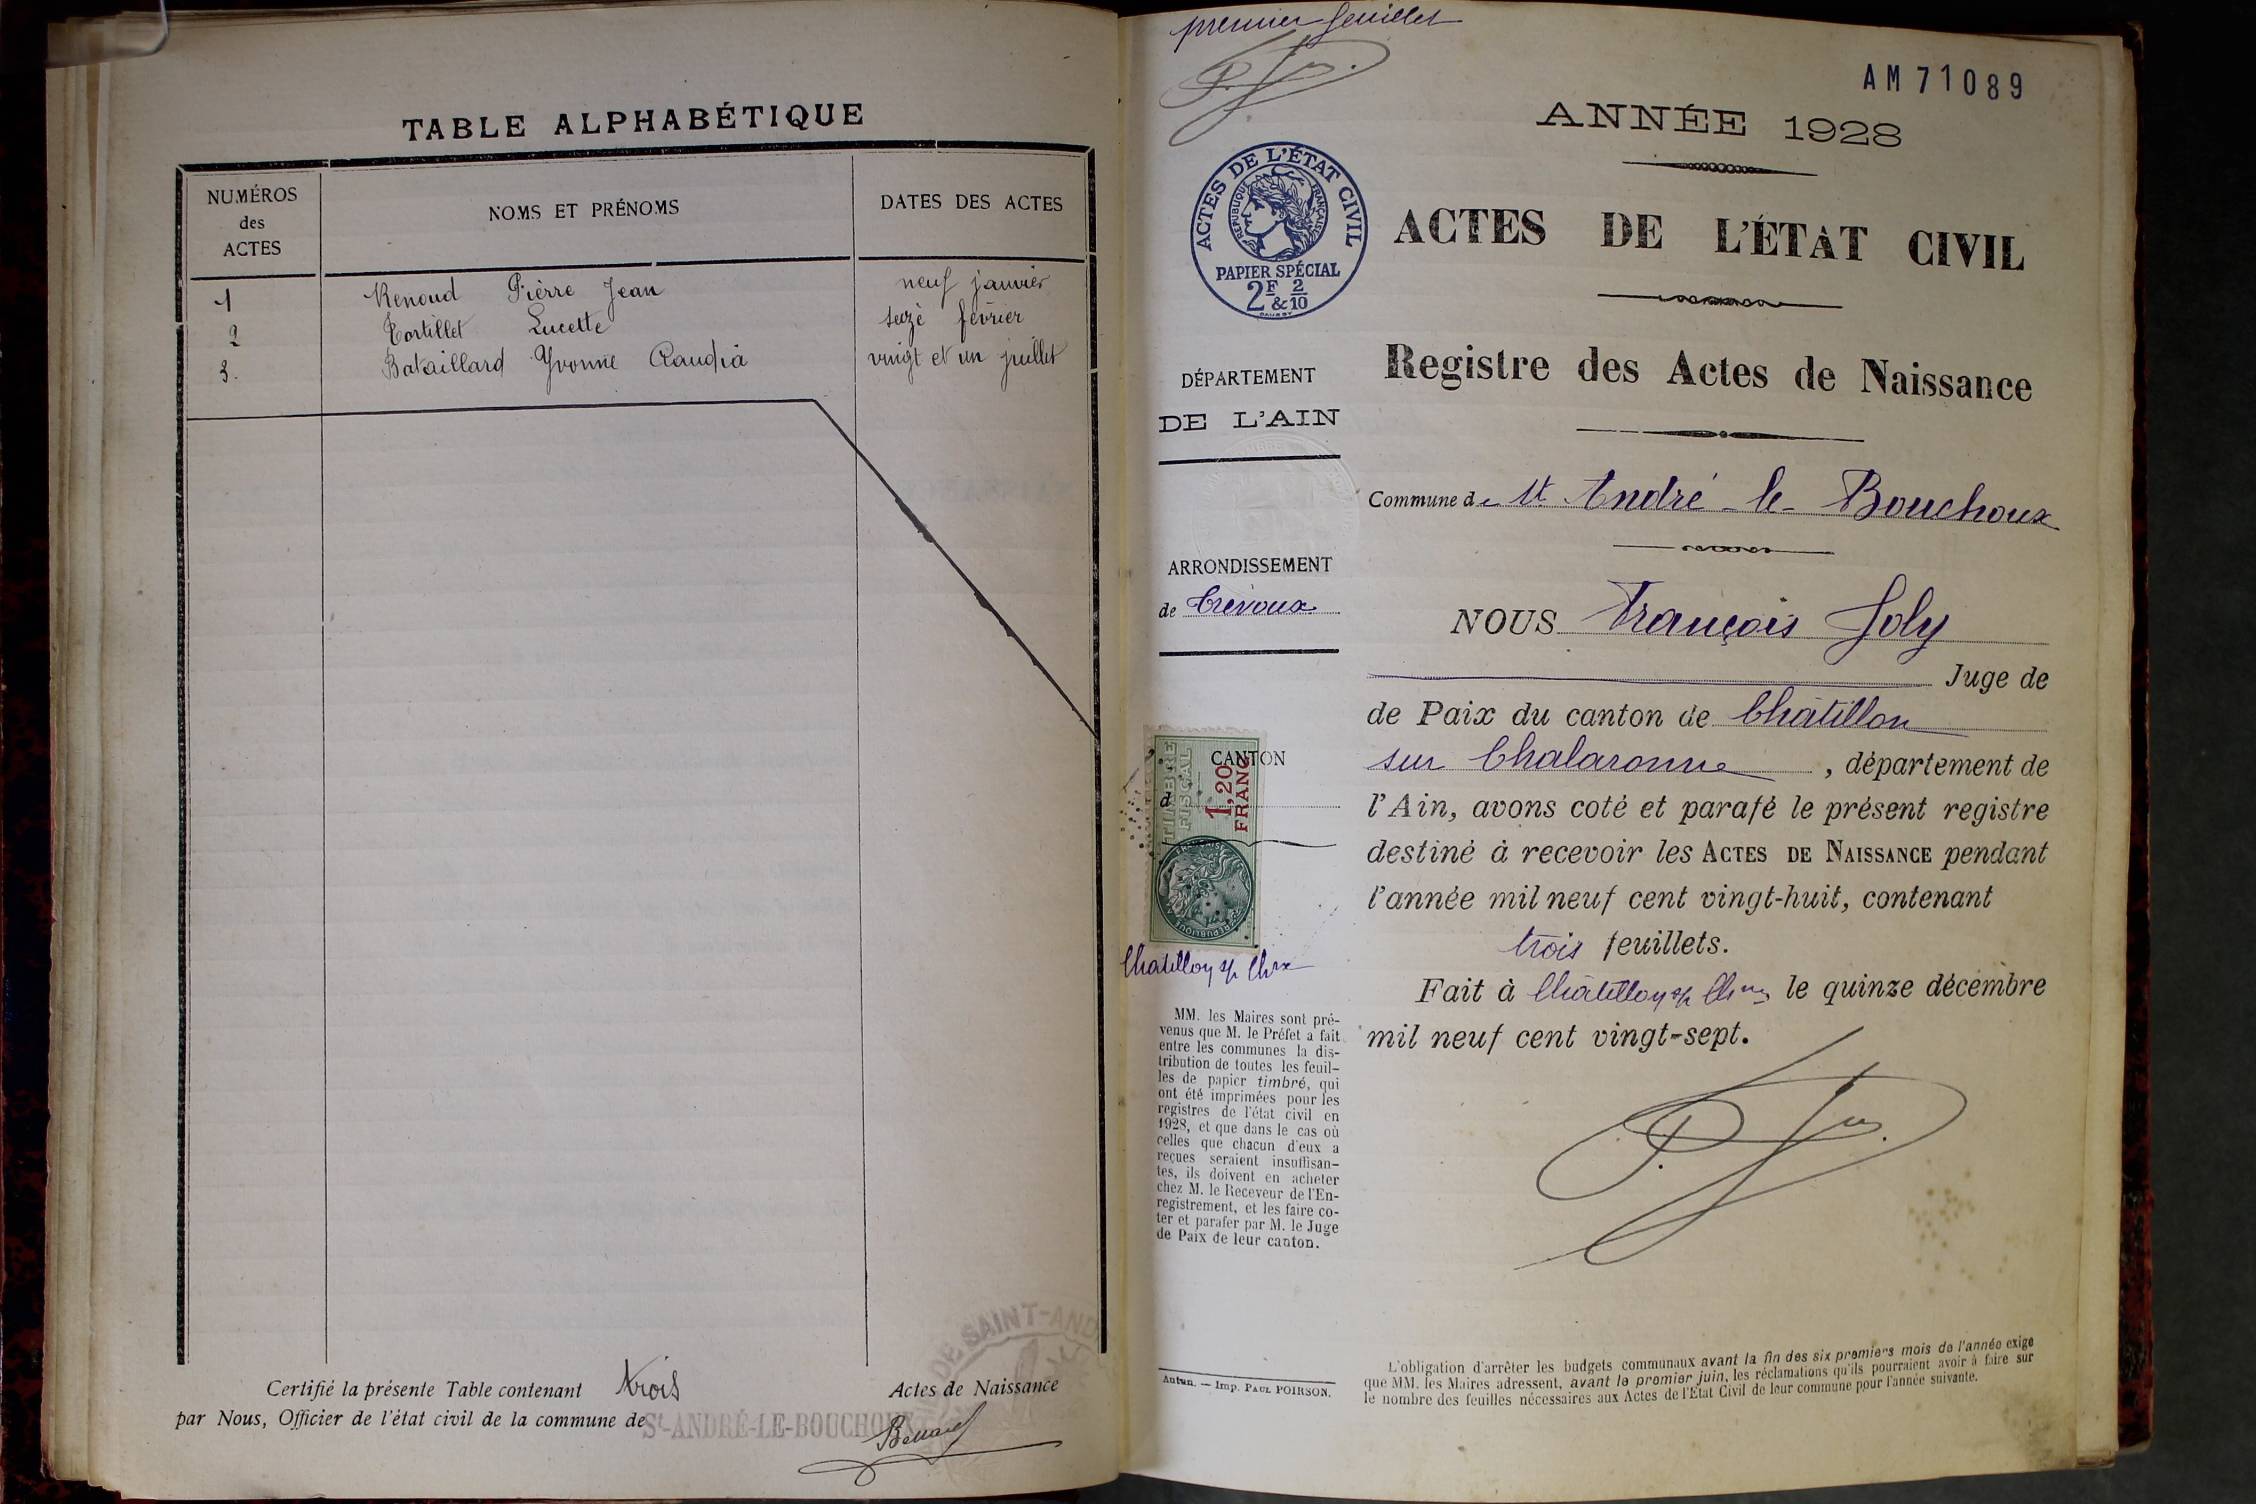 TABLE ALPHABÉTIQUE
NUMÉROS
des
ACTES
NOMS ET PRÉNOMS
DATES DES ACTES
1 Renoud Pierre Jean neuf janvier
2 Tortillet Lucette seize février
3. Bataillard Yvonne Claudia vingt et un juillet
Certifié la présente Table contenant trois Actes de Naissance
par Nous, Officier de l'état civil de la commune de St-ANDRÉ-LE-BOUCHOUX
DE SAINT-AND
premier feuillet
AM71089
ANNÉE 1928
ACTES DE L'ÉTAT CIVIL
RÉPUBLIQUE FRANÇAISE
PAPIER SPÉCIAL
2F & 2/10
ACTES DE L'ÉTAT CIVIL
Registre des Actes de Naissance
DÉPARTEMENT
DE L'AIN
Commune de St André-le-Bouchoux
ARRONDISSEMENT
de Trévoux
NOUS François Joly
Juge de
de Paix du canton de Châtillon
sur Chalaronne, département de
l'Ain, avons coté et parafé le présent registre
destiné à recevoir les ACTES DE NAISSANCE pendant
l'année mil neuf cent vingt-huit, contenant
trois feuillets.
Fait à Châtillon s/ le quinze décembre
mil neuf cent vingt-sept.
CANTON
d
TIMBRE
FISCAL
1,20
FRANC
Chatillon s/
MM. les Maires sont pré-
venus que M. le Préfet a fait
entre les communes la dis-
tribution de toutes les feuil-
les de papier timbré, qui
ont été imprimées pour les
registres de l'état civil en
1928, et que dans le cas où
celles que chacun d'eux a
reçues seraient insuffisan-
tes, ils doivent en acheter
chez M. le Receveur de l'En-
registrement, et les faire co-
ter et parafer par M. le Juge
de Paix de leur canton.
Autun. — Imp. PAUL POIRSON.
L'obligation d'arrêter les budgets communaux avant la fin des six premiers mois de l'année exige
que MM. les Maires adressent, avant le premier juin, les réclamations qu'ils pourraient avoir à faire sur
le nombre des feuilles nécessaires aux Actes de l'État Civil de leur commune pour l'année suivante.